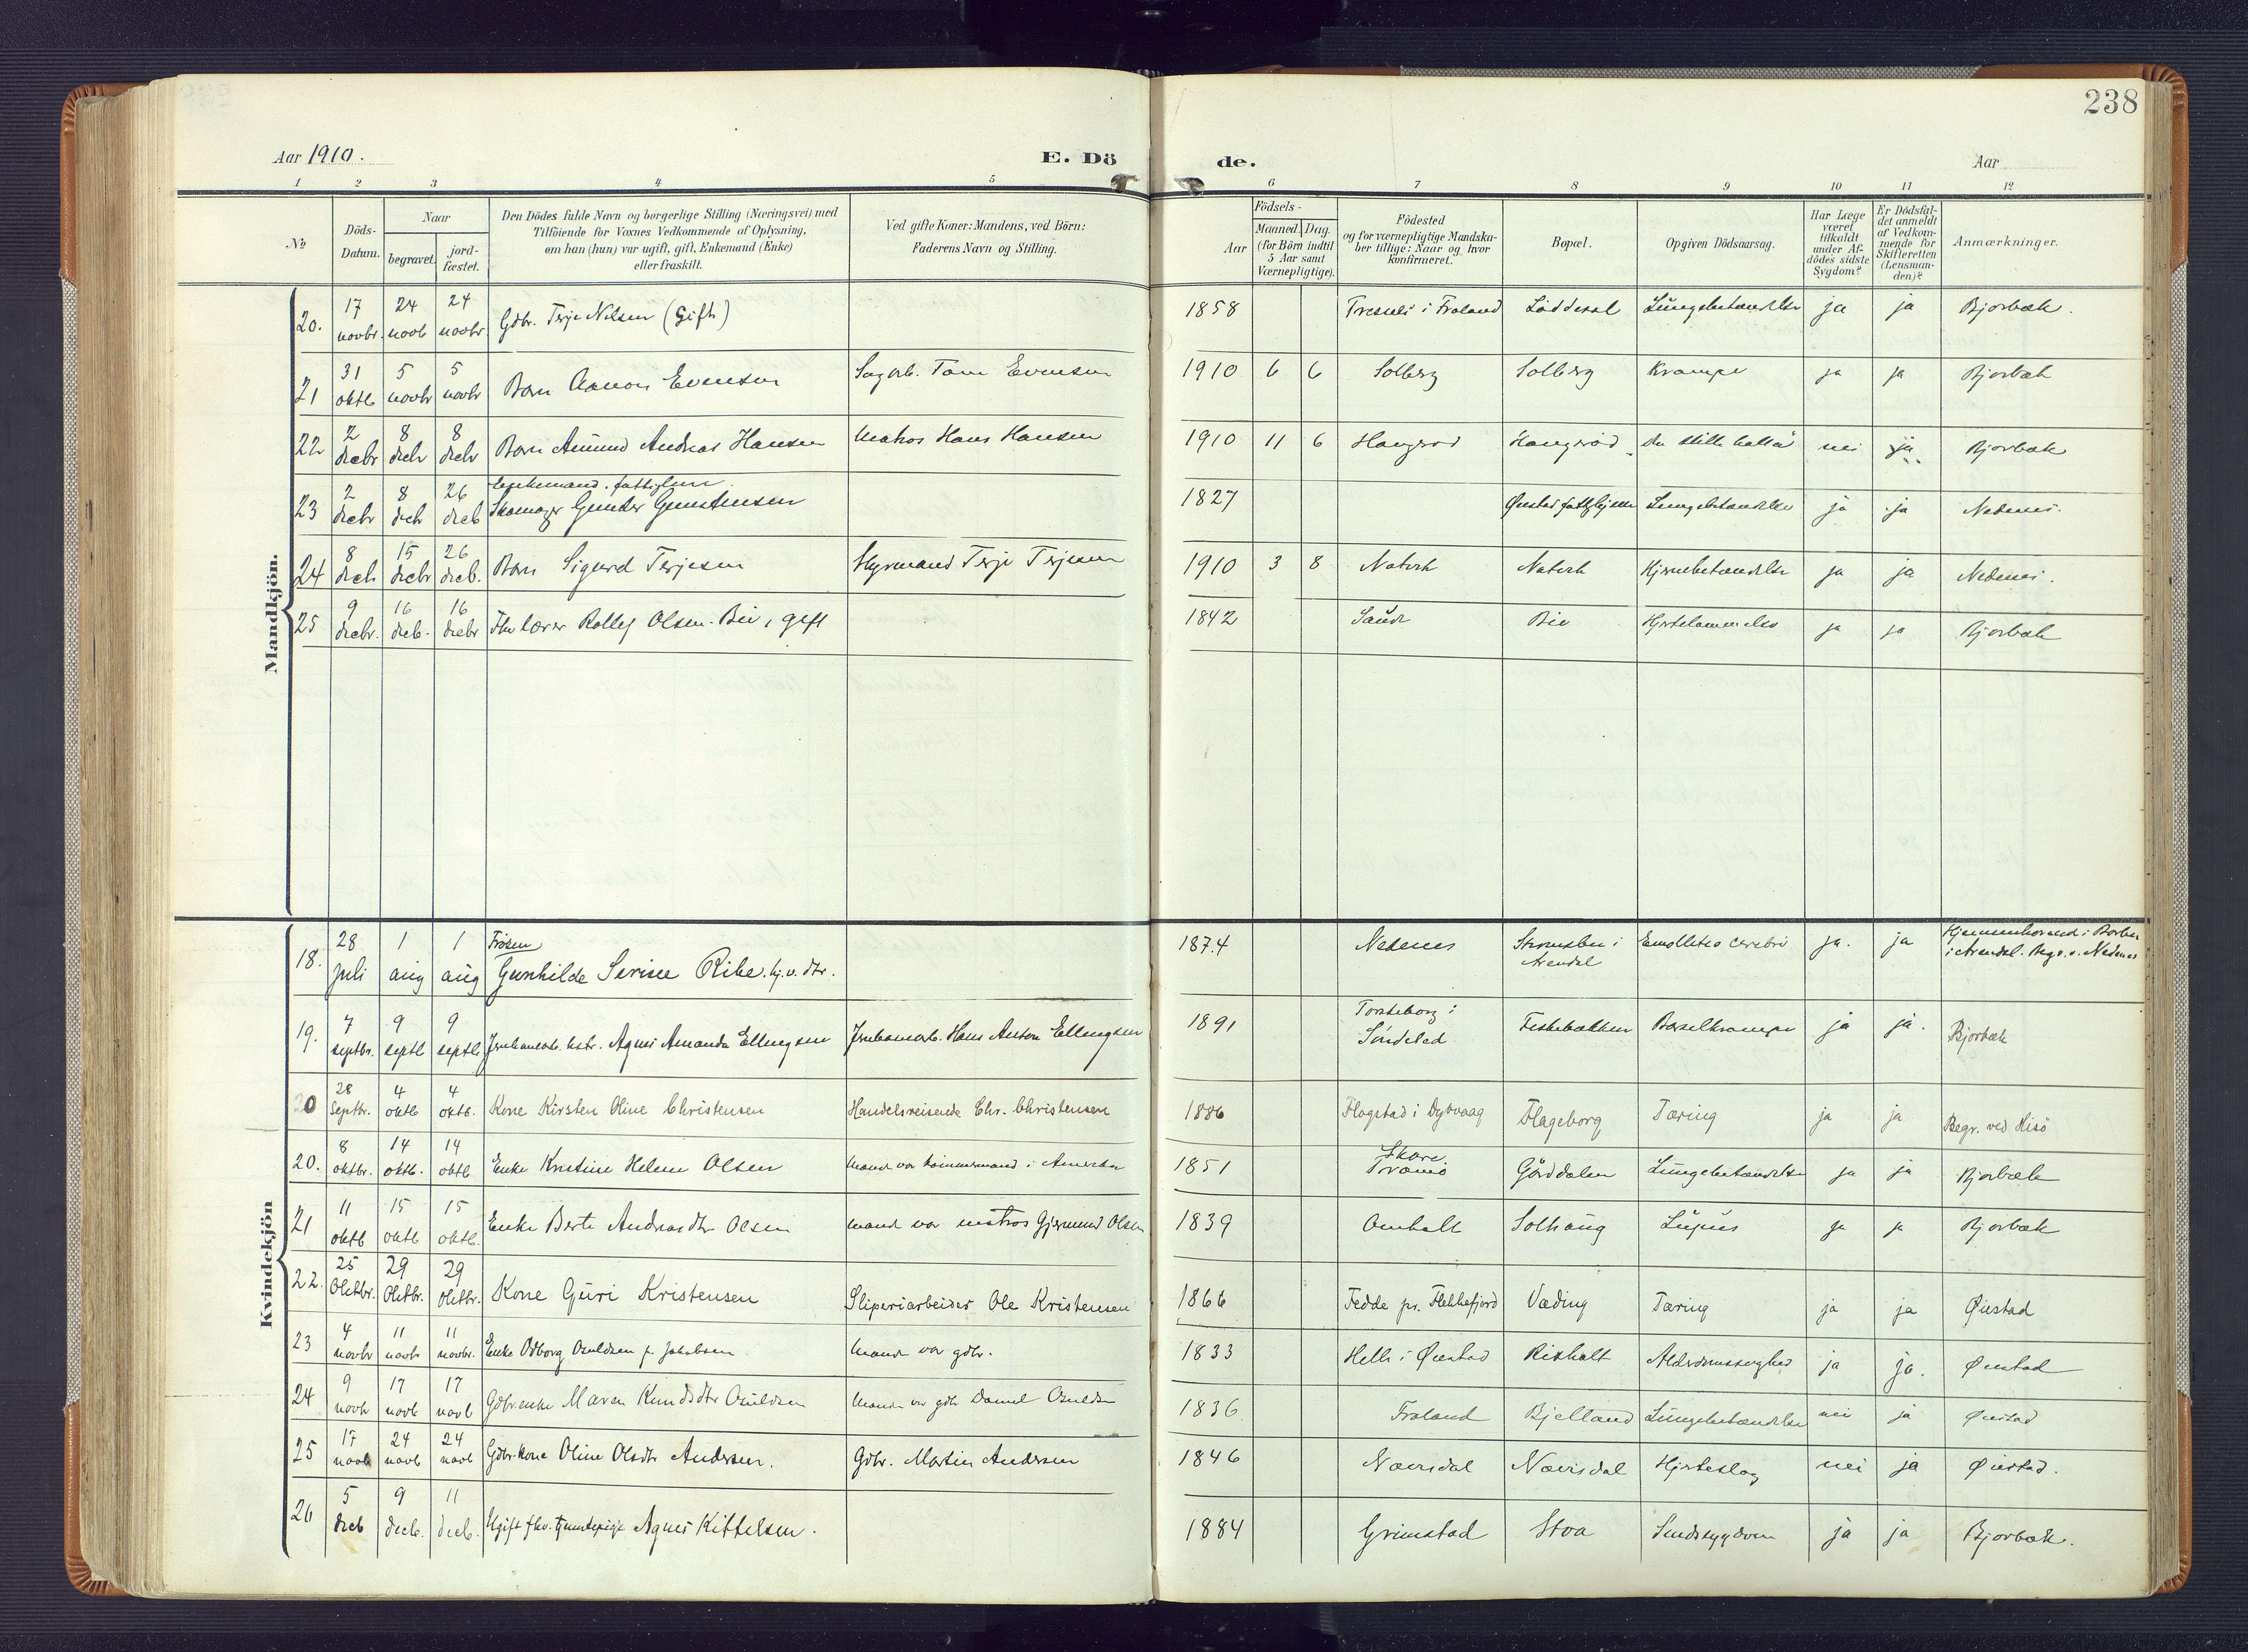 238
Aar 1910.
E. Dö
de.
Aar
1 2 3 4 5 6 7 8 9 10 11 12
№
Döds-
Datum.
Naar
begravet.
jord-
fæstet.
Den Dödes fulde Navn og borgerlige Stilling (Næringsvei) med
Tilföiende for Voxnes Vedkommende af Oplysning,
om han (hun) var ugift, gift, Enkemand (Enke)
eller fraskilt.
Ved gifte Koner: Mandens, ved Börn:
Faderens Navn og Stilling.
Födsels-
Aar
Maaned. Dag.
(for Börn indtil
5 Aar samt
Værnepligtige).
Födested
og for værnepligtige Mandska-
ber tillige: Naar og hvor
konfirmeret.
Bopæl.
Opgiven Dödsaarsag.
Har Læge
været
tilkaldt
under Af-
dödes sidste
Sygdom?
Er Dödsfal-
det anmeldt
af Vedkom-
mende for
Skifteretten
(Lensman-
den)?
Anmærkninger.
Mandkjön.
20. 17 novbr. 24 novb 24 novbr. Gdbr. Terje Nilsen (Gift) 1858 i Froland Löddesöl Lungebetændelse ja ja Bjorbæk.
21 31 oktb 5 novbr 5 novbr Barn Aanon Evensen Sagarb. Tom Evensen 1910 6 6 Solberg Solberg Krampe ja ja Bjorbæk
22 2 decbr 8 decbr 8 decbr Barn Amund Andreas Hansen Matros Hans Hansen 1910 11 6 Haugerød Haugerød nei ja Bjorbæk
23 2 decbr 8 decbr 26 decb Enkemand. fattiglem. Skomager Gunder Gunstensen 1827 Øiestad Lungebetændelse ja ja Nedenes.
24 8 decb 15 decbr 26 decb. Barn Sigurd Terjesen Styrmand Terje Terjesen 1910 3 8 Natvik Natvik Hjernebetændelse ja ja Nedenes.
25 9 decbr. 16 decb. 16 decbr Fhv lærer Rollef Olsen Bie, gift 1842 Bie Hjertelammelse ja ja Bjorbæk
Kvindekjön
18. 28 juli 1 aug 1 aug Frøken Gunhilde Serine Ribe. 1874 Nedenes Strømsbu i Arendal Emollitio cerebri ja. ja Hjemmehørende i Barbu i Arendal. Begr. v. Nedenes
19. 7 septbr. 9 septb 9 septb Jernbanearb. hstr. Agnes Amanda Ellingsen Jernbanearb. Hans Anton Ellingsen 1891 Torsteborg i Søndeled Fiskebækken Barselkrampe ja ja. Bjorbæk
20 28 Septbr. 4 oktb 4 oktb. Kone Kirsten Oline Christensen Handelsreisende Chr. Christensen 1886 Flogstad i Dybvaag Flageborg Tæring ja ja Begr. ved Hisö
20. 8 oktbr. 14 oktb. 14 oktb Enke Kristine Helene Olsen Mand var tømmermand i Amerika 1851 Skare Tromö Gårddalen Lungebetændelse ja ja Bjorbæk
21 11 oktb 15 oktb 15 oktb. Enke Berte Andreasdtr Olsen mand var matros Gjermund Olsen 1839 Omholt Solhaug Lupus ja ja Bjorbæk
22. 25 Oktbr. 29 Oktbr. 29 Oktbr. Kone Guri Kristensen Sliperiarbeider Ole Kristensen 1866 Fedde pr. Flekkefjord Væding Tæring ja ja Øiestad
23 4 novbr 11 novbr 11 novbr. Enke Odborg Osuldsen f. Jakobsen Mand var gdbr. 1833 Helle i Øiestad Risholt Alderdomssvaghed ja ja. Øiestad
24 9 novbr 17 novb 17 novb Gdbr.enke Maren Knudsdtr Osuldsen Mand var gdbr Daniel Osuldsen 1836 Froland Bjelland Lungebetændelse nei ja Øiestad
25 17 novb 24 novb 24 novb Gdbr.kone Oline Olsdtr Andersen. Gdbr. Martin Andersen 1846 Næversdal Næversdal Hjerteslag nei ja Øiestad.
26 5 decb 9 decb. 11 decb. Ugift fhv. tjenestepige Agnes Kittelsen. 1884 Grimstad Stoa Sindssygdom ja ja Bjorbæk.